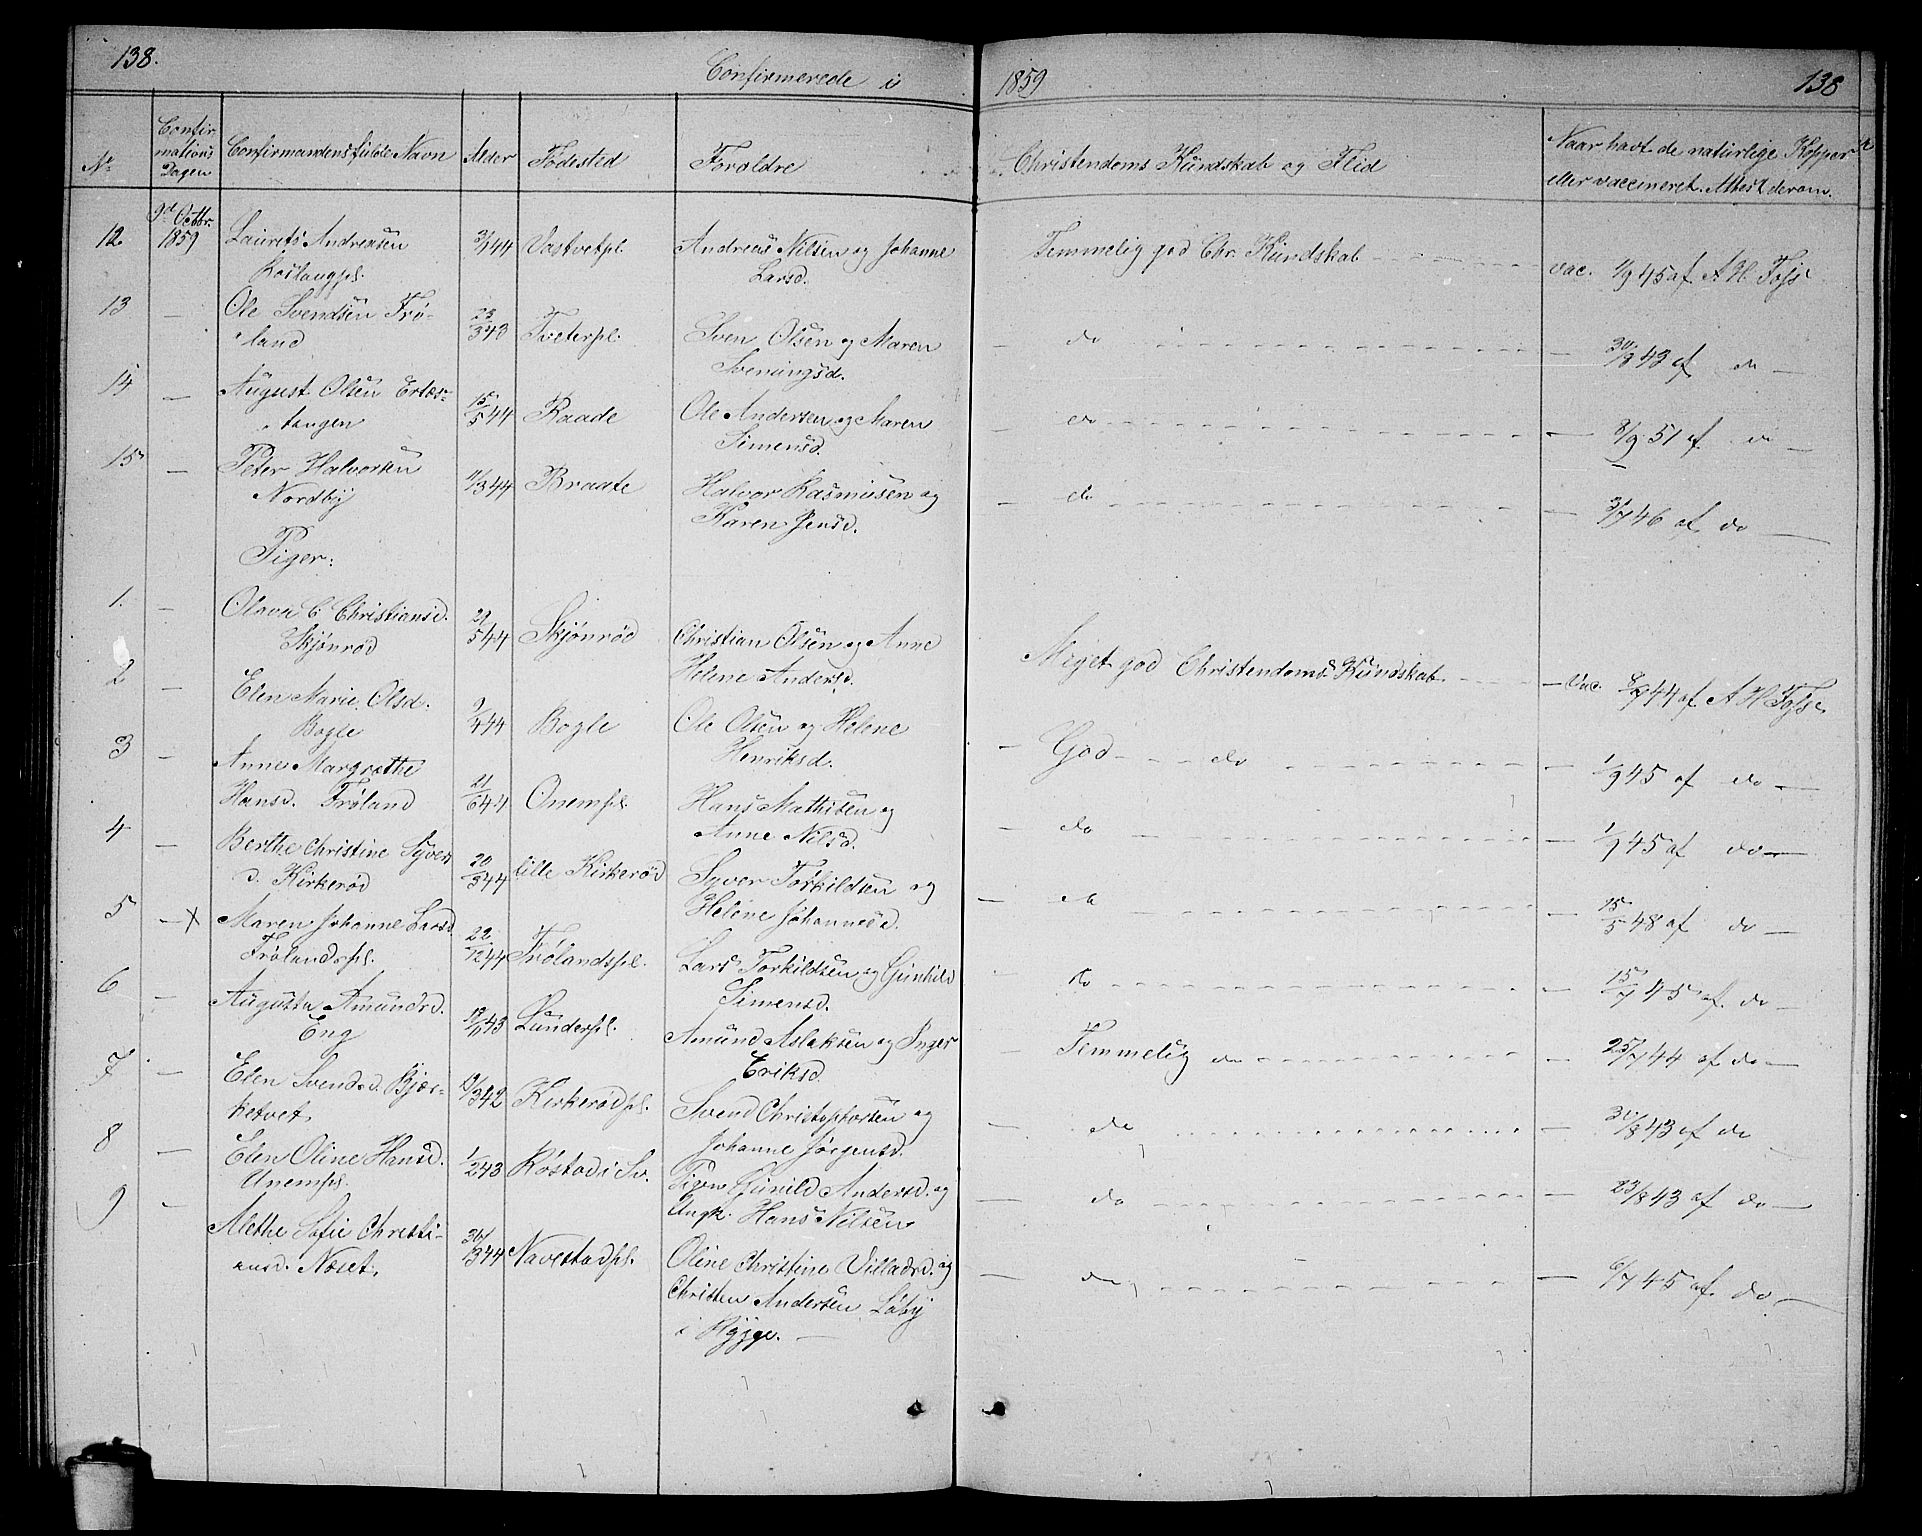 138.
Confirmerede i 1859
138
No
Confir
mations
Dagen
Confirmandens fulde Navn
Alder
Fødested
Foraldre
Christendoms Kundskab og Flid
Naar havt de naturlige Kopper
eller vaccineret. Attest derom.
9de Octbr.
12 1859 Laurets Andreasen 3/1 44 Vastvetpl. Andreas Nilsen og Johanne Temmelig god Chr. Kundskab vac. 1/9 45 af A H. Fojs
Larsd.
13 — Ole Svendsen Frø- 23/3 43 Tveterpl. Sven Olsen og Maren — do — 30/8 43 af do —
land Sveningsd.
14 — August Olsen Ertes- 15/5 44 Raade Ole Andersen og Maren do — 8/9 51 af do —
tangen Simensd.
15 — Peter Halvorsen 11/3 44 Braate Halvor Rasmusen og — do — 3/7 46 af do —
Nordby Karen Jensd.
Piger:
1. — Olava C. Christiansd. 29/5 44 Skjønrød Christian Olsen og Anne Meget god Christendoms Kundskab — Vac. 8/9 44 af A H Fojs
Skjønrød Helene Andersd.
2 — Elen Marie Olsd. 9/4 44 Bogle Ole Olsen og Helene — God do — 1/9 45 af do —
Bogle Henriksd.
3 — Anne Margrethe 21/6 44 Onempl. Hans Mathisen og — do — 1/9 45 af do —
Hansd. Frøland Anne Nilsd.
4 — Berthe Christine Syvers 20/3 44 lille Kirkerød Syver Torkildsen og — do — 15/5 48 af do —
d. Kirkerød Helene Johannesd.
5 — x Maren Johanne Larsd. 22/12 44 Frølandspl. Lars Torkildsen og Gunhild — do — 15/7 45 af do —
Frølandspl. Simensd.
6 — Augusta Amundsd. 18/11 43 Lunderpl. Amund Aslaksen og Inger — Temmelig do — 25/7 44 af do —
Eng Eriksd.
7 — Elen Svendsd. Bjør- 19/3 42 Kirkerødpl. Svend Christophersen og — do — 31/8 43 af do
ketvet. Johanne Jørgensd.
8 — Elen Oline Hansd. 1/2 43 Røstad i Sv. Pigen Gunild Andersd. og — do — 23/8 43 af do —
Unempl. Ungk. Hans Nilsen
9 — Alethe Sofie Christi- 30/1 44 Navestadpl. Oline Christine Villadsd. og — do — 6/7 45 af do —
ansd. Næset. Christen Andersen Løby
i Rygge. —